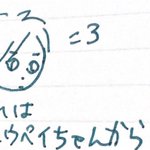 =3
れは
ウペイちゃんから